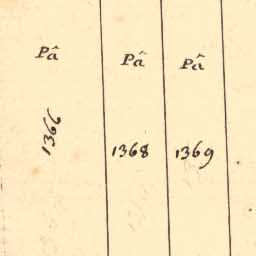 Pâ Pâ Pâ
1366 1368 1369